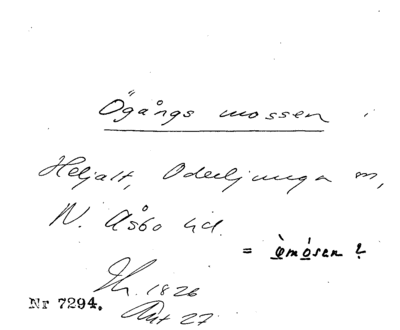 Ögångs mossen
Heljalt, Oderljunga sn,
N. Åsbo hd.
= òmósen ?
Th. 1826
Akt 27
Nr 7294.